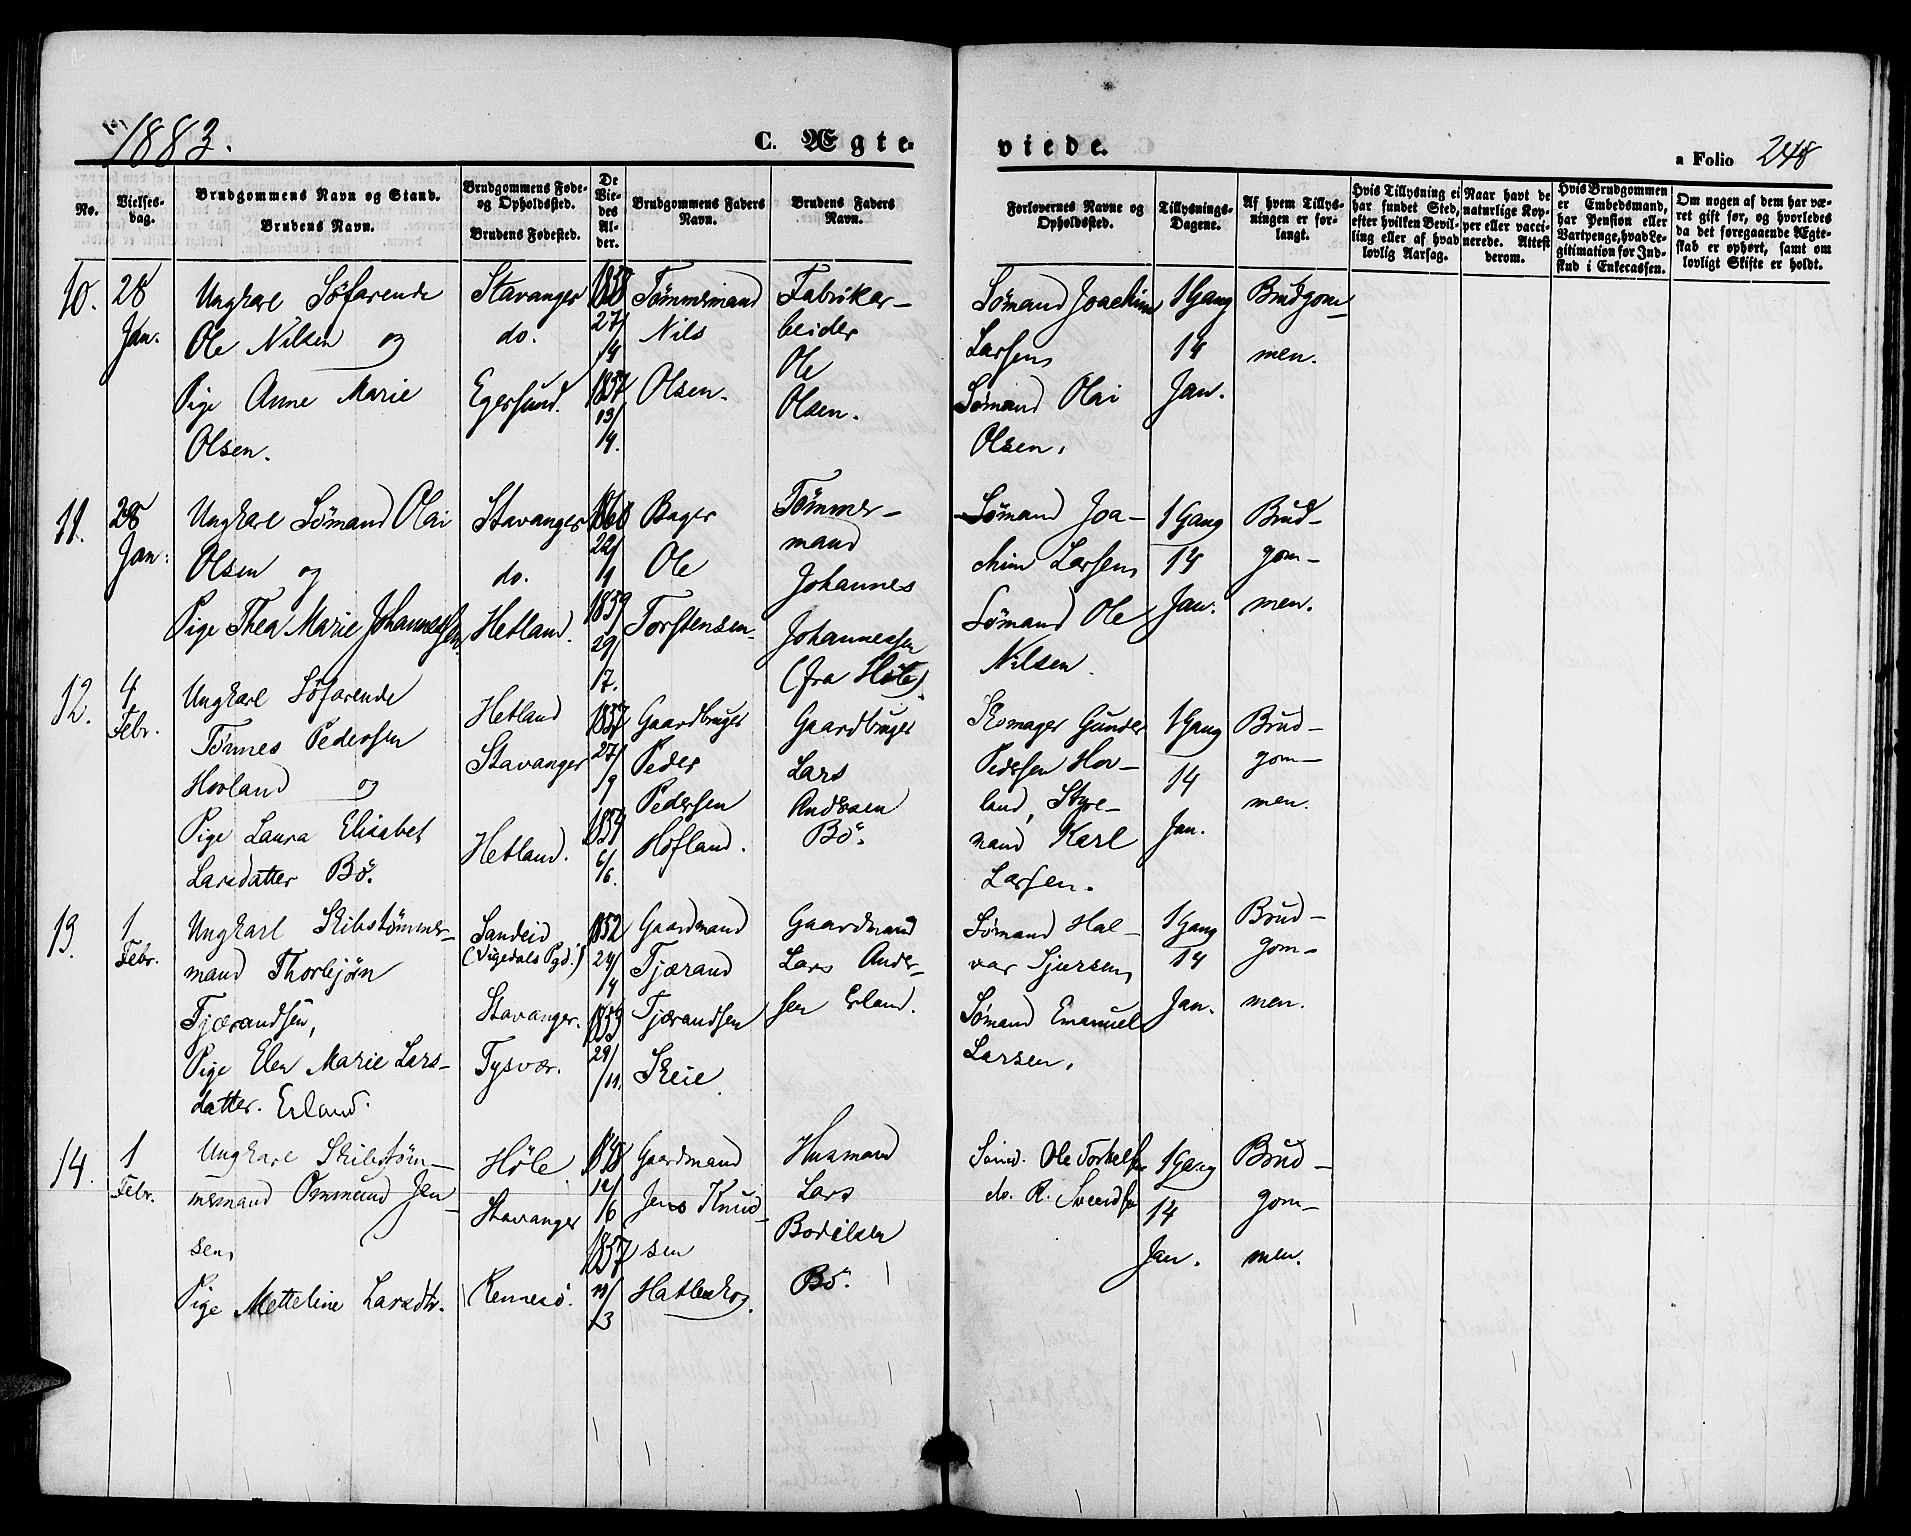 1883.
C. Ægte-
viede.
a Folio 248
No.
Vielses-
dag.
Brudgommens Navn og Stand.
Brudens Navn.
Brudgommens Føde-
og Opholdssted.
Brudens Fødested.
De
Vie-
des
Al-
der.
Brudgommens Faders
Navn.
Brudens Faders
Navn.
Forlovernes Navne og
Opholdssted.
Tillysnings-
Dagene.
Af hvem Tillys-
ningen er for-
langt.
Hvis Tillysning ei
har fundet Sted,
efter hvilken Bevil-
ling eller af hvad
lovlig Aarsag.
Naar havt de
naturlige Kop-
per eller vacci-
nerede. Attest
derom.
Hvis Brudgommen
er Embedsmand,
har Pension eller
Vartpenge, hvad Le-
gitimation for Ind-
skud i Enkecassen.
Om nogen af dem har væ-
ret gift før, og hvorledes
da det foregaaende Ægte-
skab er ophørt, samt om
lovligt Skifte er holdt.
10.
28
Jan.
Ungkarl Söfarende
Ole Nilsen og
Pige Anne Marie
Olsen.
Stavanger
do.
Egersund.
1858
27/
/4
1857
13/
/4.
Tömmermand
Nils
Olsen.
Fabrikar-
beider
Ole
Olsen.
Sømand Joachim
Larsen,
Sømand Olai
Olsen.
1 Gang
14
Jan.
Brudgom-
men.
11.
28
Jan.
Ungkarl Sømand Olai
Olsen og
Pige Thea Marie Johannessen.
Stavanger
do.
Hetland.
1860
22/
/4
1859
29/
/7.
Bager
Ole
Torstensen
Tömmer-
mand
Johannes
Johannessen
(fra Höle).
Sømand Joa-
chim Larsen,
Sømand Ole
Nilsen.
1 Gang
14
Jan.
Brud-
gom-
men.
12.
4
Febr.
Ungkarl Söfarende
Tönnes Pedersen
Hovland og
Pige Laura Elisabet
Larsdatter Bö.
Hetland
Stavanger
Hetland.
1857
27/
/9
1854
6/
/6.
Gaardbruger
Peder
Pedersen
Hofland.
Gaardbruger
Lars
Andersen
Bö.
Skomager Gunder
Pedersen Hov-
land, Styr-
mand Karl
Larsen.
1 Gang
14
Jan.
Brud-
gom-
men.
13.
1
Febr.
Ungkarl Skibstömmer-
mand Thorbjørn
Tjærandsen,
Pige Elen Marie Lars-
datter. Erland.
Sandeid
(Vigedals Pgd.)
Stavanger.
Tysvær.
1852
24/
/4
1853
29/
/11.
Gaardmand
Tjærand
Tjærandsen
Skeie.
Gaardmand
Lars Ander-
sen Erland.
Sømand Hal-
var Sjursen,
Sømand Emanuel
Larsen.
1 Gang
14
Jan.
Brud-
gom-
men.
14.
1
Febr.
Ungkarl Skibstöm-
mermand Ommund Jen-
sen,
Pige Metteline Larsdtr.
Höle
Stavanger
Rennesö.
1848
12/
/6
1857
/3
Gaardmand
Jens Knud-
sen
Hatleskog.
Husmand
Lars
Bodilsen
Bö.
Sømd. Ole Torkelsen
do. R. Svendsen
1 Gang
14
Jan.
Brud-
gom-
men.